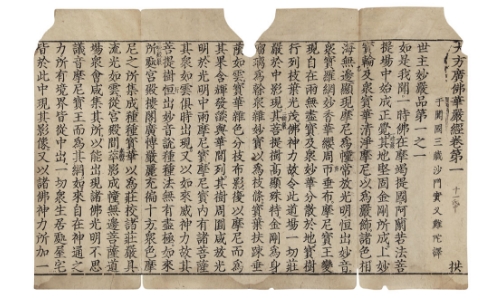 大方廣佛華嚴經卷第一
于闐國三藏沙門實叉難陀譯
世主妙嚴品第一之一
如是我聞一時佛在摩竭提國阿蘭若法菩
提場中始成正覺其地堅固金剛所成上妙
寶輪及眾寶華清淨摩尼以為嚴飾諸色相
海無邊顯現摩尼為幢常放光明恒出妙音
眾寶羅網妙香華纓周帀垂布摩尼寶王變
現自在雨無盡寶及眾妙華分散於地寶樹
行列枝葉光茂佛神力故令此道場一切莊
嚴於中影現其菩提樹高顯殊特金剛為身
瑠璃為幹眾雜妙寶以為枝條寶葉扶踈垂
蔭如雲寶華雜色分枝布影復以摩尼而為
其果含輝發焰與華間列其樹周圓咸放光
明於光明中雨摩尼寶摩尼寶內有諸菩薩
其眾如雲俱時出現又以如來威神力故其
菩提樹恒出妙音說種種法無有盡極如來
所處宮殿樓閣廣博嚴麗充徧十方眾色摩
尼之所集成種種寶華以為莊校諸莊嚴具
流光如雲從宮殿間萃影成幢無邊菩薩道
場眾會咸集其所以能出現諸佛光明不思
議音摩尼寶王而為其網如來自在神通之
力所有境界皆從中出一切眾生居處屋宅
皆於此中現其影像又以諸佛神力所加一